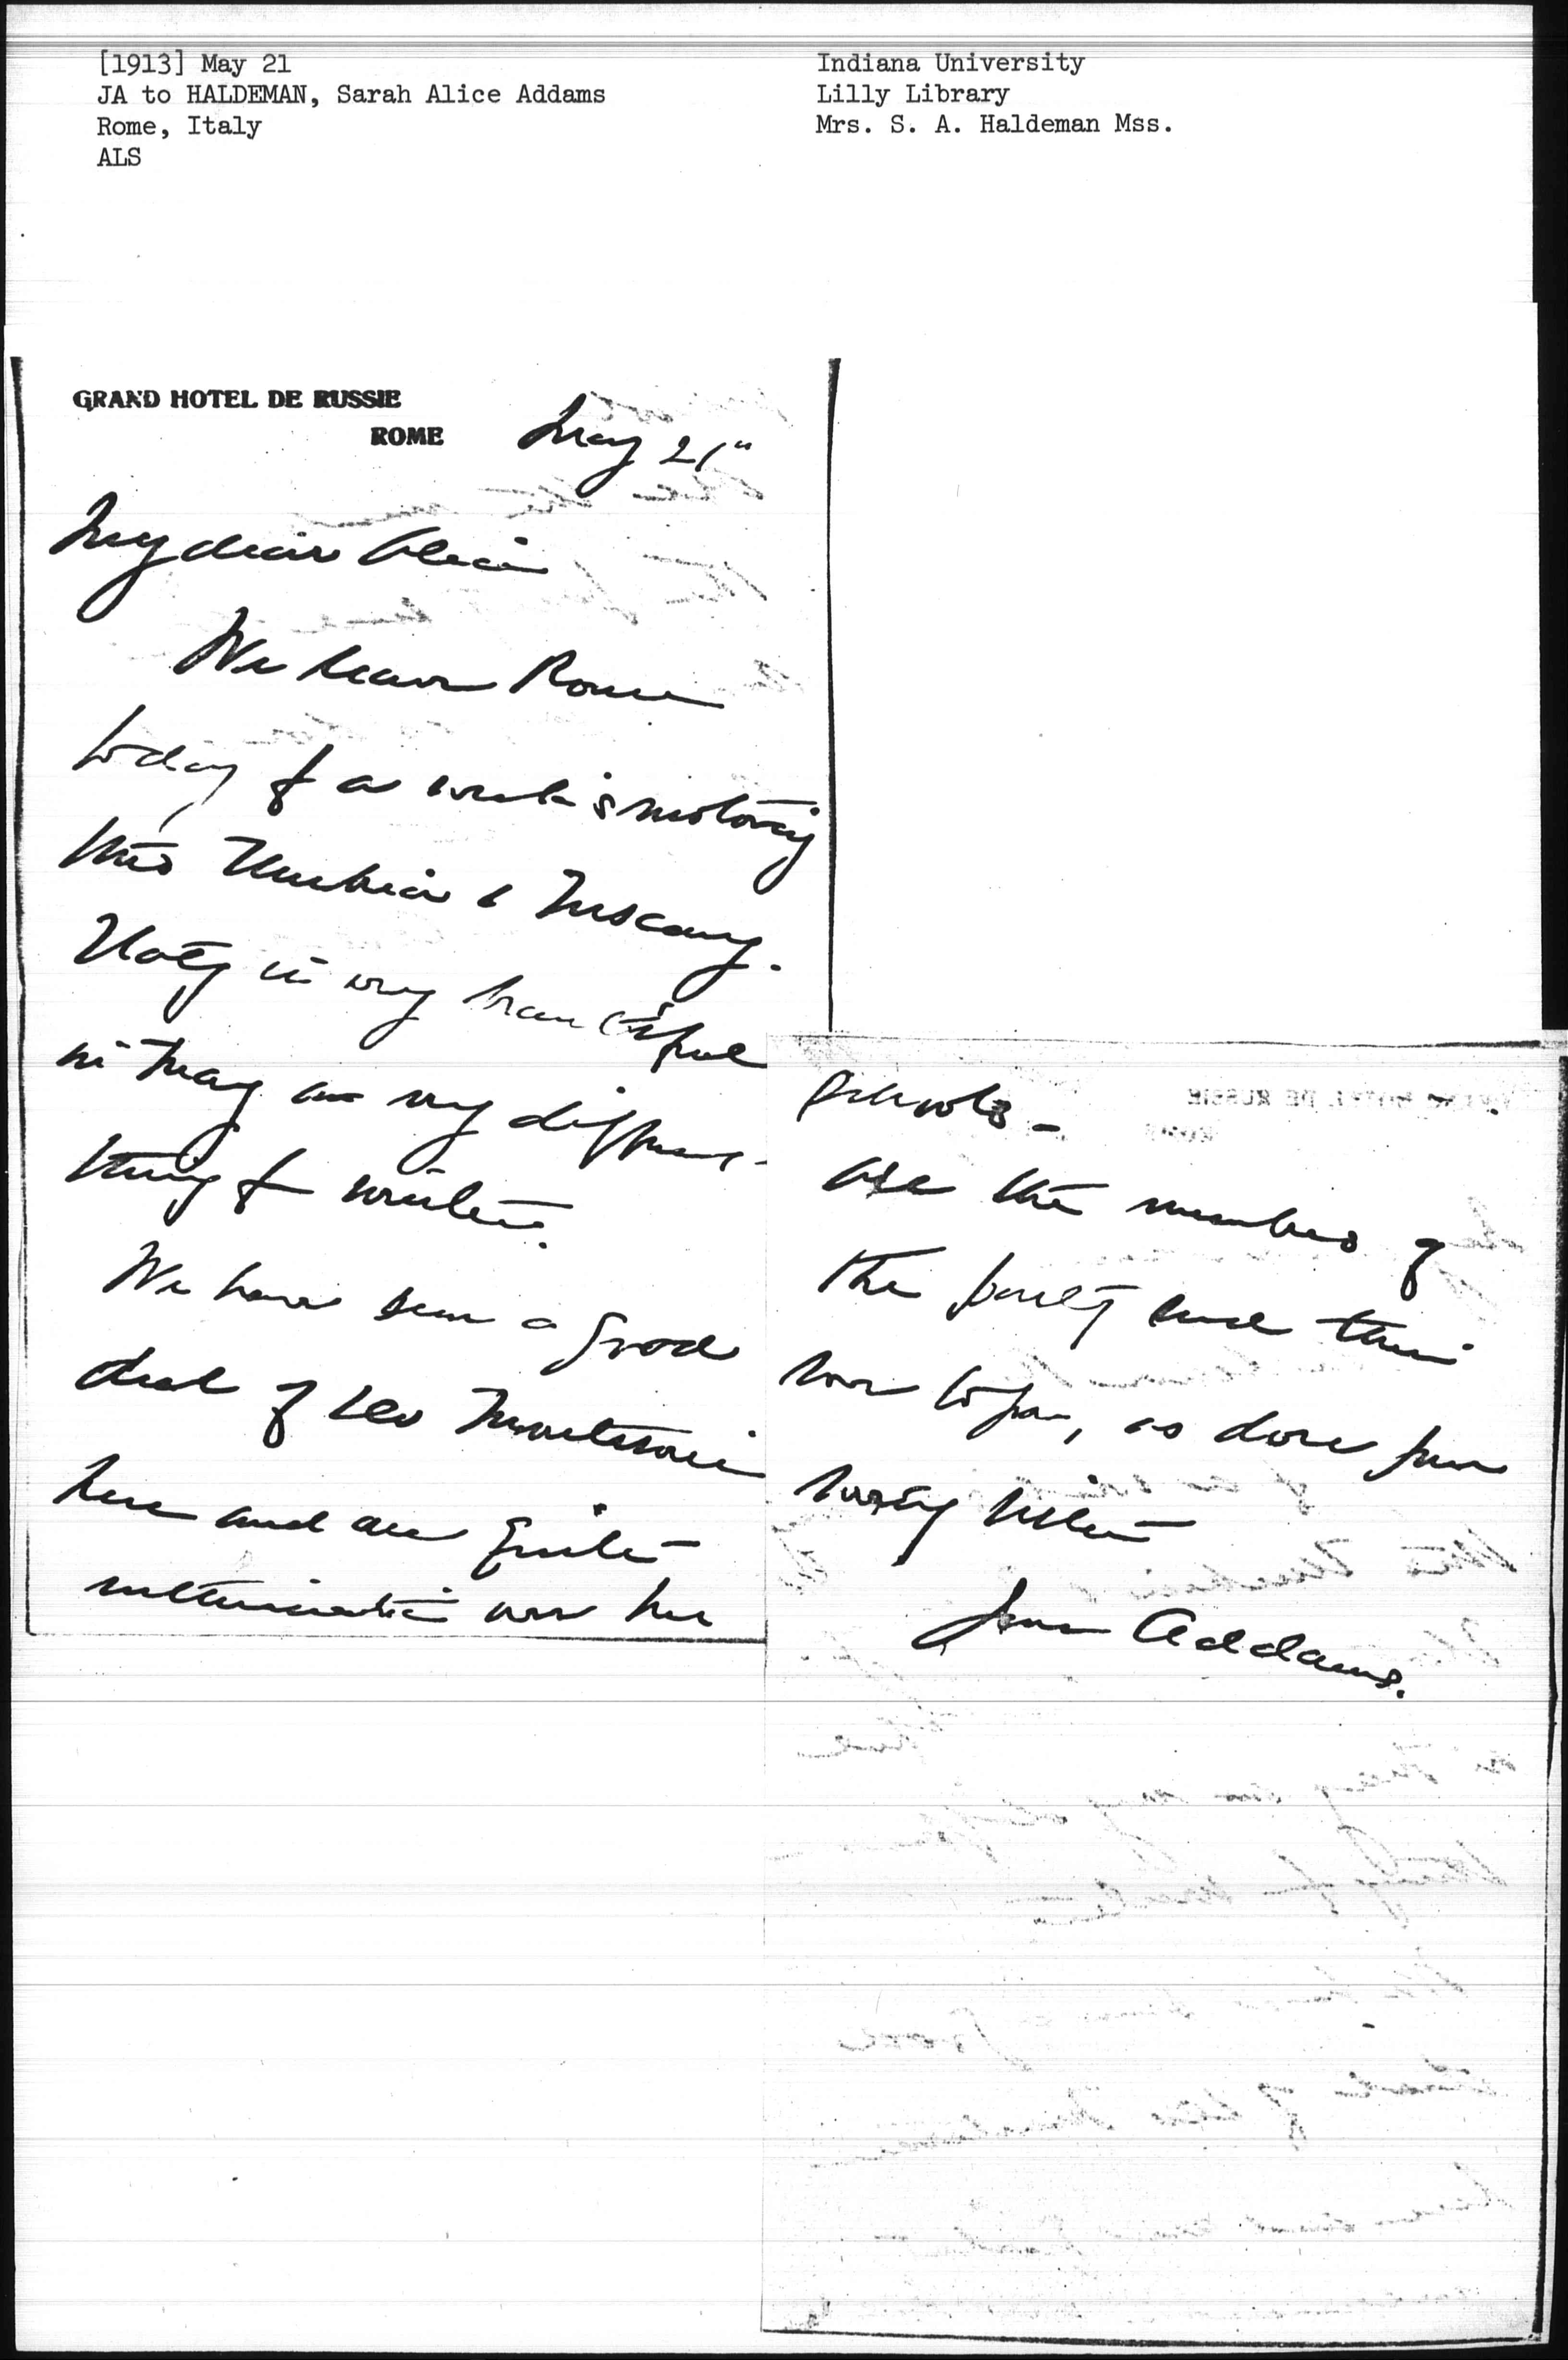 [1913] May 21
JA to HALDEMAN, Sarah Alice Addams
Rome, Italy
ALS
Indiana University
Lilly Library
Mrs. S. A. Haldeman Mss.
GRAND HOTEL DE RUSSIE
ROME
May 21"
My dear Alice
We leave Rome
today for a week's motoring
thro Umbria & Tuscany.
Italy is very beautiful
in May and very different
thing from winter.
We have seen a good
deal of Montessori
here and are quite
enthusiastic over her
schools -
All the members of
the party send their
love to you, as does your
loving sister
Jane Addams.